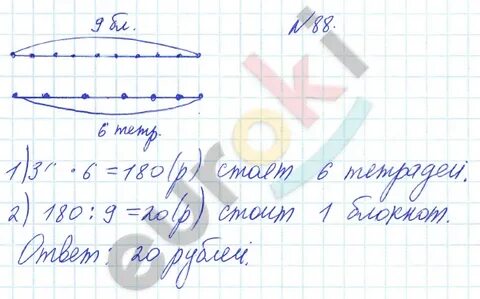 9 бл.
№88.
6 тетр.
1) 3 · 6 = 180(р) стоят 6 тетрадей.
2) 180 : 9 = 20(р) стоит 1 блокнот.
Ответ: 20 рублей.
euroki